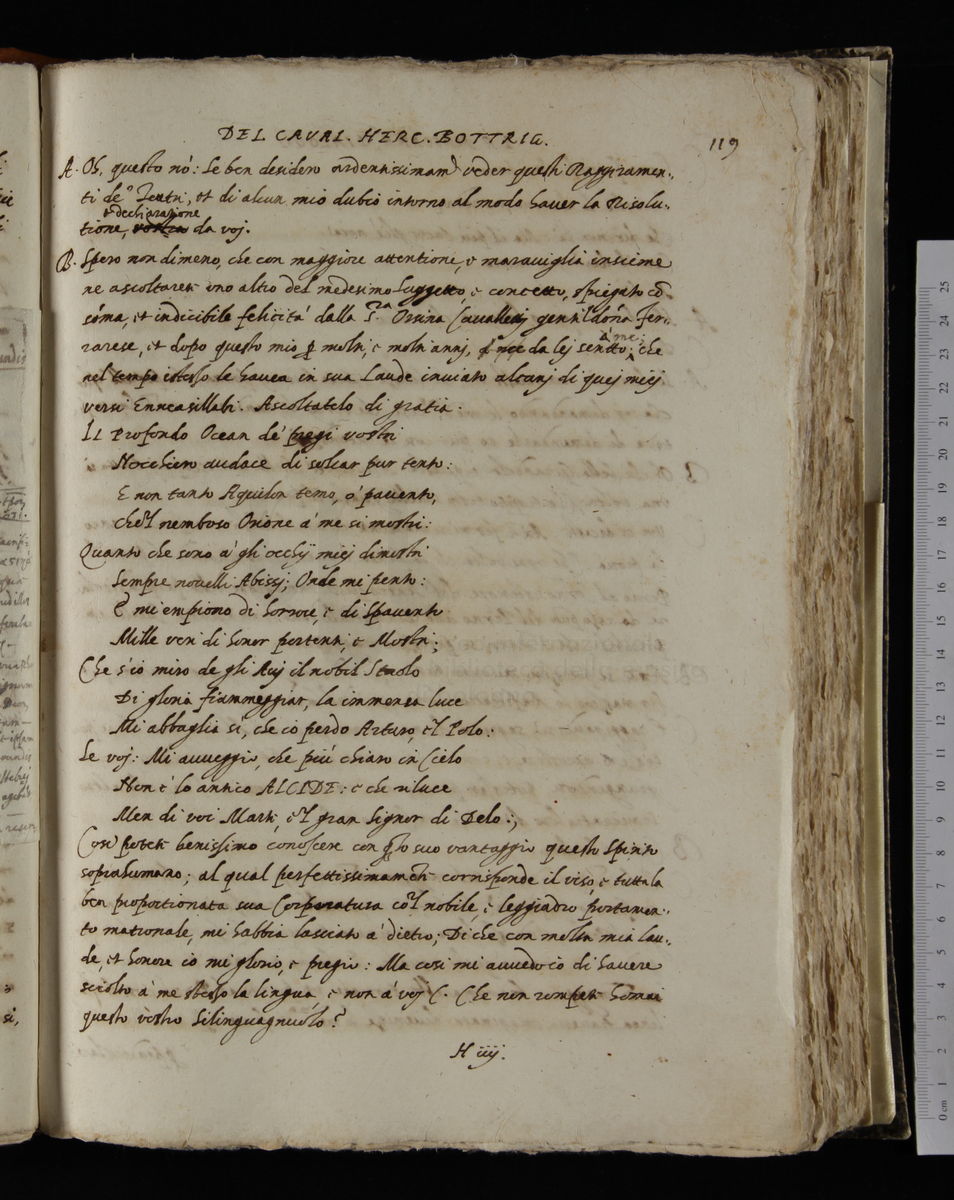 DEL CAVAL. HERC. BOTTRIG.
119
A. Oh, questo nò: Se ben desidero ardentissimam̃ veder questi Raggiramen-
ti de' Teatri, et di alcun mio dubio intorno al modo haver la Risolu-
e dechiaratione
tione, da voj.
B. Spero non dimeno, che con maggiore attentione, e maraviglia insieme
ne ascoltarete uno altro del medesimo Suggetto, e concetto, spiegato cō
sōma, et indicibile felicità dalla S.ra Orsina Cavalletij gentil'dōna Fer-
rarese, et dopo questo mio molti, e molti anni, da lej sentito, che
à me
nel tempo istesso le havea in sua Laude inviato alcunj di quej miej
versi Enneasillabi. Ascoltatelo di gratia.
Il Profondo Ocean de' pregi vostri
Nocchiero audace di solcar pur tento:
E non tanto Aquilon temo, o' pavento,
che'l nemboso Orione a' me si mostri:
Quanto che sono a' gli occhij miej dimostri
Sempre novelli Abissj; Onde mi pento:
E mi empiono di horrore, e di spavento
Mille veri di honor portenti, e Mostri;
Che s'io miro de gli Avj il nobil Stuolo
Di gloria fiammeggiar, la immensa luce
Mi abbaglia si, che io perdo Arturo, e'l Polo:
Se voj: Mi avveggio, che più chiaro in Cielo
Non è lo antico ALCIDE: e che riluce
Men di voi Marte, e'l gran Signor di Delo:
Così potete benissimo conoscere con suo vantaggio questo Spirito
soprahumano; al qual perfettissimamente corrisponde il viso, e tutta la
ben proportionata sua Corporatura co'l nobile, e leggiadro portamen-
to matronale, mi habbia lasciato a' dietro; Di che con molta mia lau-
de, et honore io mi glorio, e pregio: Ma così mi avvedo io di havere
sciolto a' me stesso la lingua, e non a' voj. Che non rompete homai
questo vostro Silinguagnuolo?
H iiij.